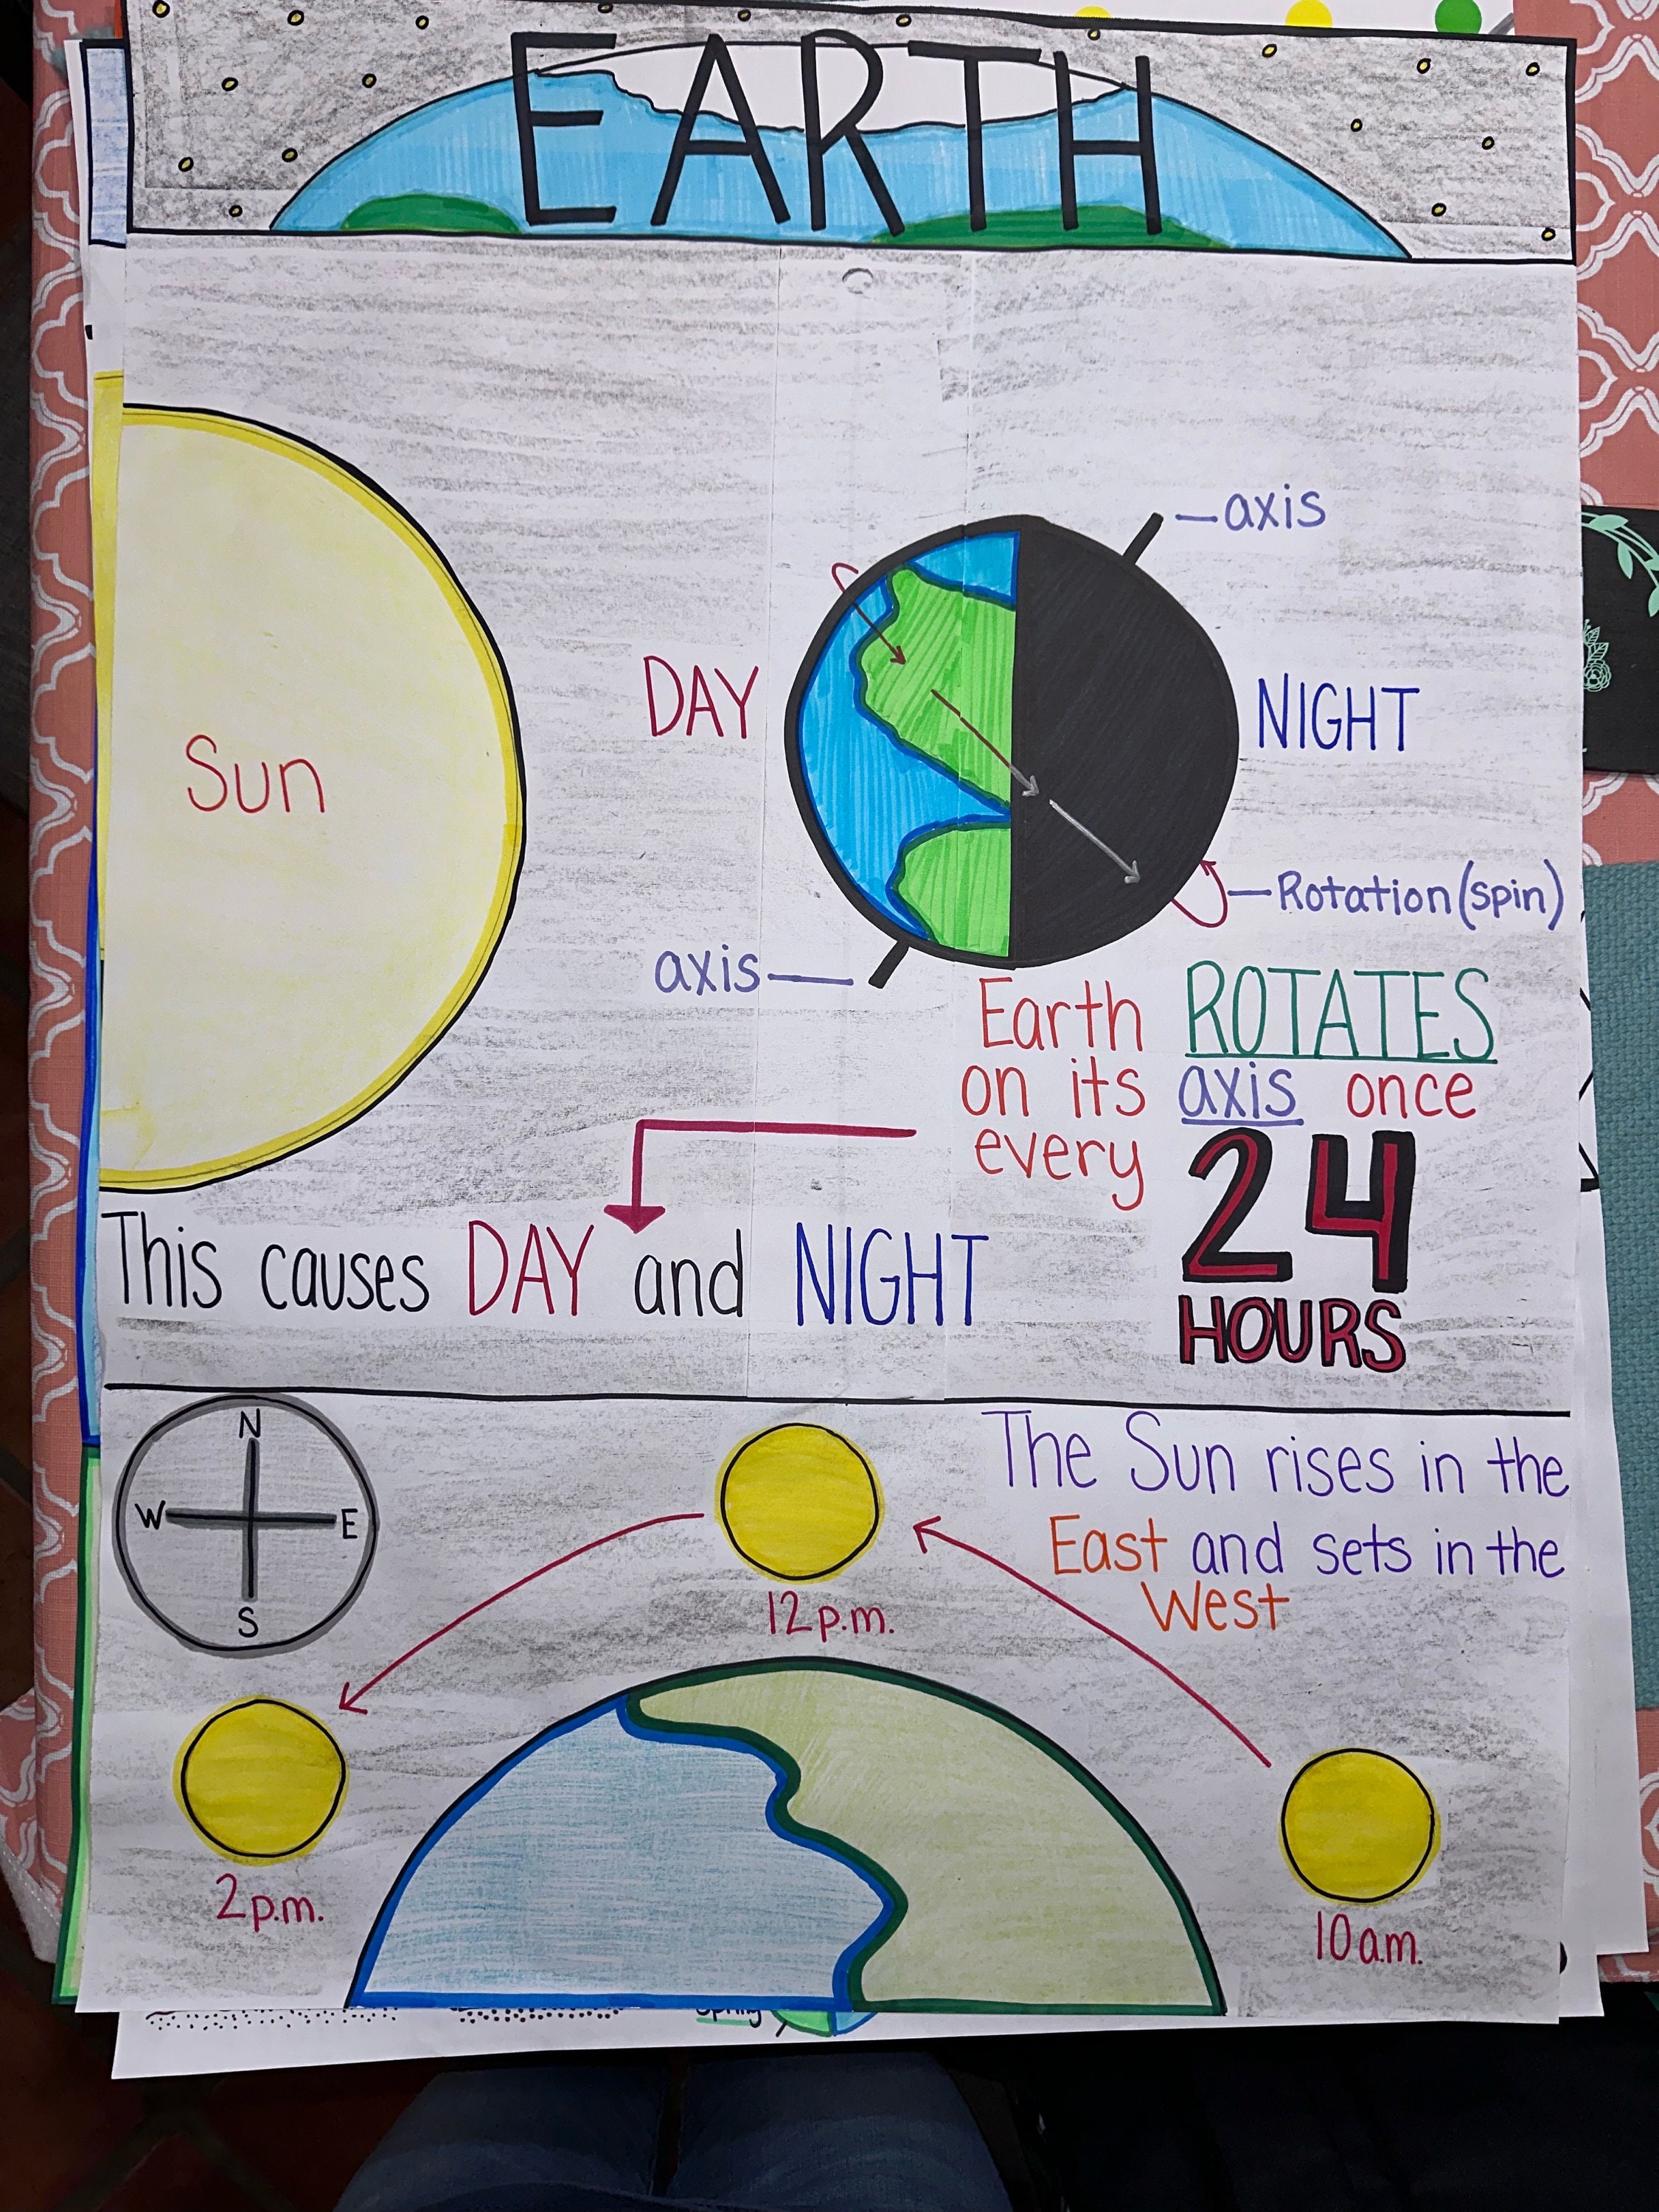 EARTH
axis
DAY
NIGHT
Sun
Rotation (spin)
axis
Earth ROTATES
on its axis once
every
24
HOURS
This causes DAY and NIGHT
N
W E
S
The Sun rises in the
East and sets in the
West
12 p.m.
2 p.m.
10 a.m.
Spring